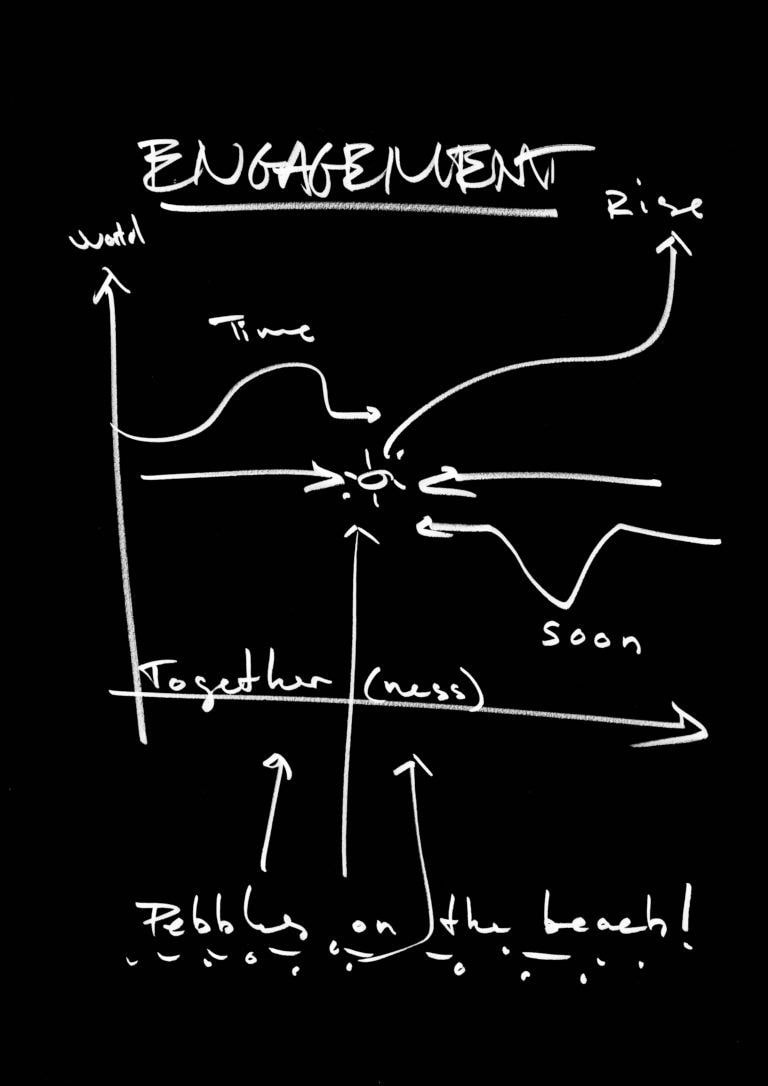 ENGAGEMENT
Rise
World
Time
Soon
Together (ness)
Pebbles on the beach!